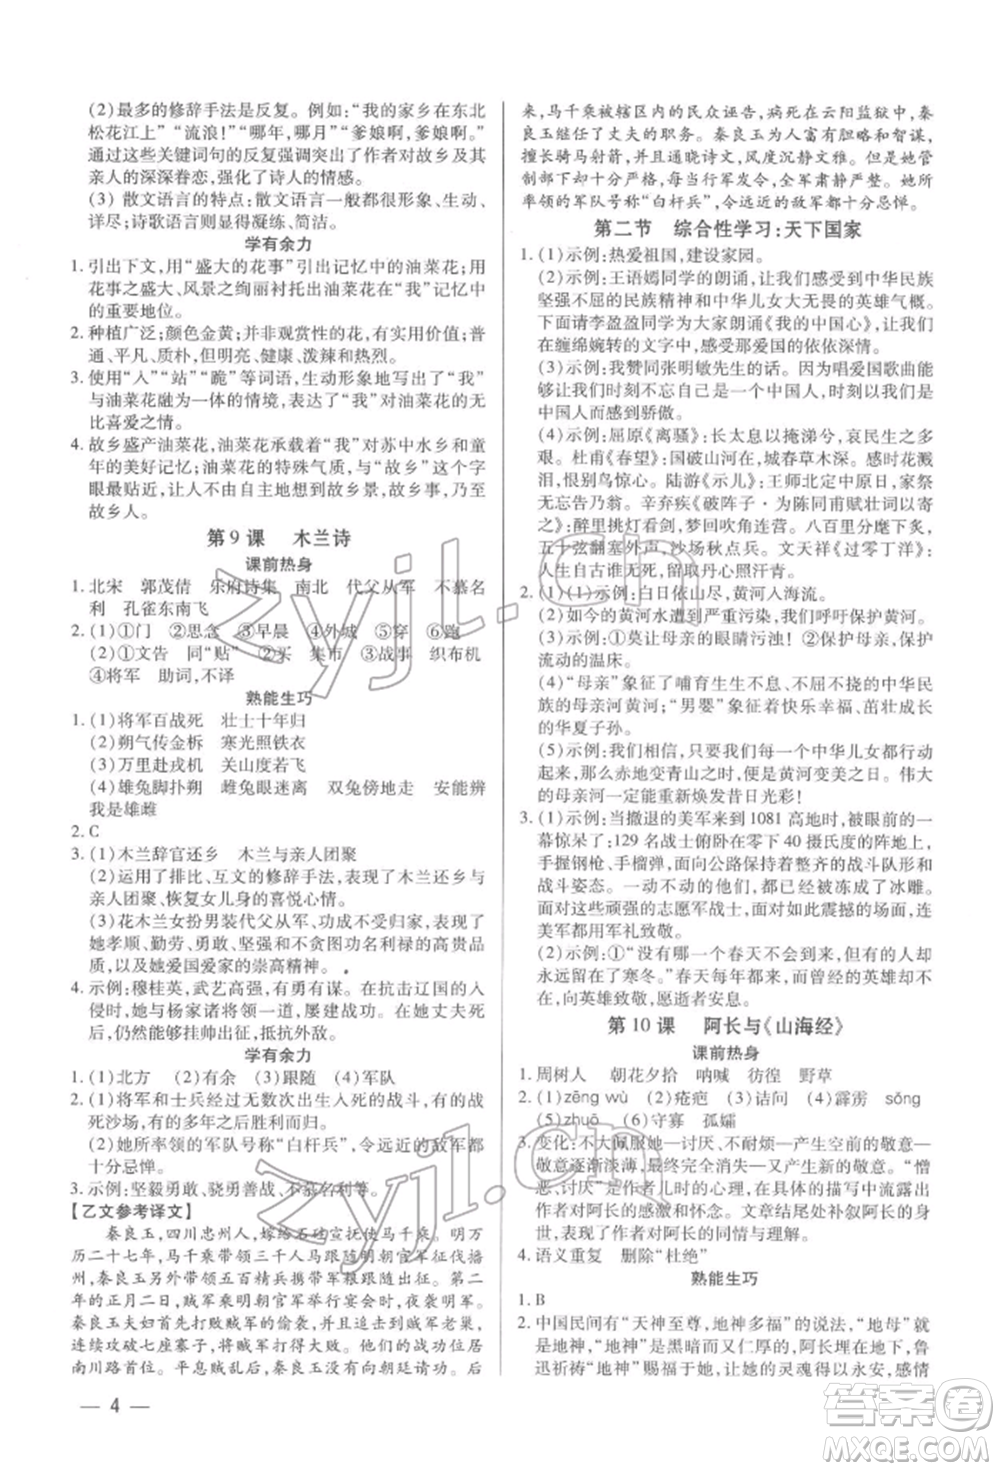 (2)最多的修辞手法是反复。例如:“我的家乡在东北
松花江上”“流浪!”“哪年,哪月”“爹娘啊,爹娘啊。”
通过这些关键词句的反复突出了作者对故乡及其
亲人的深深眷恋,强化了诗人的情感。
(3)散文语言的特点:散文语言一般都很形象、生动、
详尽;诗歌语言则凝练、简洁。
学有余力
1. 引出下文,用“盛大的花事”引出记忆中的油菜花,用
花事之盛大、风景之绚丽衬托出油菜花在“我”记忆中
的重要地位。
2. 种植广泛;颜色金黄;并非观赏性的花,非常有用;普
通、平凡、质朴,但明亮、泼辣和热烈。
3. 使用“人”“站”“跪”等词语,生动形象地写出了“我”
与油菜花融为一体的情境,表达了“我”对油菜花的无
比喜爱之情。
4. 故乡盛产油菜花,油菜花承载着“我”对苏中水乡和童
年的美好记忆;油菜花的特殊气质,与“故乡”这个字
眼最贴近,让人不由自主地想到故乡景,故乡事,乃至
故乡人。
第 9 课 木兰诗
课前热身
1. 北宋 郭茂倩 乐府诗集 南北 代父从军 不慕名
利 孔雀东南飞
2. (1)①门 ②思念 ③早晨 ④外城 ⑤穿 ⑥跑
(2)①文告 同“贴” ②买 集市 ③战事 织布机
④将军 助词,不译
熟能生巧
1. (1)将军百战死 壮士十年归
(2)朔气传金柝 寒光照铁衣
(3)万里赴戎机 关山度若飞
(4)雄兔脚扑朔 雌兔眼迷离 双兔傍地走 安能辨
我是雄雌
2. C
3. (1)木兰辞官还乡 木兰与亲人团聚
(2)运用了排比、互文的修辞手法,表现了木兰与家
人团聚、恢复女儿身的喜悦心情。
(3)花木兰女扮男装代父从军、功成不受归家,表现了
她孝顺、勤劳、勇敢、坚强和不贪图功名利禄的高贵品
质,以及她爱国爱家的崇高精神。
4. 示例:穆桂英,武艺高强,有勇有谋。在抗击辽国的入
侵时,与杨家诸将一道,屡建战功。在她丈夫死后,
仍然能够挂帅出征,抵抗外敌。
学有余力
1. (1)北方 (2)有余 (3)跟随 (4)军队
2. (1)将军和士兵经过无数次出生入死的战斗,有的战
死沙场,有的多年之后胜利而归。
(2)她所率领的军队号称“白杆兵”,令远近的敌军都
十分忌惮。
3. 示例:坚毅勇敢、骁勇善战、不慕名利等。
【乙文参考译文】
秦良玉,四川忠州人,嫁给石砫宣抚使马千乘。万
历二十七年,马千乘带领三千人马跟随明朝官军征伐播
州,秦良玉另外带领五百精兵携带军粮跟随官军。第二
年的正月二日,贼军乘明朝官军宴饮之时,夜袭明军。
秦良玉夫妇首先打败贼军的偷袭,并追入贼军老巢,
连续攻破七座寨子,随后直取桑木关,大败贼军,成为
南川路首位。平贼叛乱后,秦良玉没有邀功请功。后
来,马千乘被辖区内的民众诬告,病死在云阳监狱中,秦
良玉于是继任了丈夫的职务。秦良玉为人有胆略和智谋,
擅长骑马射箭,并且通晓诗文,风度沉静文雅。但是她管
制部下十分严格,每次行军发令,全军肃静严整。她所
率领的军队号称“白杆兵”,令远近的敌军都十分忌惮。
第二节 综合性学习:天下国家
1. (1)示例:热爱祖国,建设家园。
(2)示例:王语嫣同学的朗诵,让我们感受到中华民族
坚强不屈的民族精神和中华儿女大无畏的英雄气概。
下面请李盈盈同学为大家朗诵《我的中国心》,让我们
在缠绵婉转的文字中,感受那爱国的依依深情。
(3)示例:我赞同张明敏先生的话。因为唱爱国歌曲能够
让我们时刻不忘自己是一个中国人,时刻为自己是一个
中国人而感到骄傲。
(4)示例:屈原《离骚》:长太息以掩涕兮,哀民生之多
艰。杜甫《春望》:国破山河在,城春草木深。感时花溅
泪,恨别鸟惊心。陆游《示儿》:王师北定中原日,家祭
无忘告乃翁。辛弃疾《破阵子·为陈同甫赋壮词以寄
之》:醉里挑灯看剑,梦回吹角连营。八百里分麾下炙,
五十弦翻塞外声,沙场秋点兵。文天祥《过零丁洋》:
人生自古谁无死,留取丹心照汗青。
2. (1)(1)示例:白日依山尽,黄河入海流。
(2)如今的黄河水遭到严重污染,我们呼吁保护黄河。
(3)示例:①莫让母亲的眼睛污浊!②保护母亲,保护流
淌的温床。
(4)“母亲”象征了哺育生生不息的中华民族的母亲河
黄河;“男婴”象征快乐幸福、茁壮成长的华夏子孙。
(5)示例:我们相信,只要我们每一个中华儿女都行动
起来,那么赤地变青山之时,便是黄河变美之日。伟大
的母亲河一定能重新焕发昔日光彩!
3. (1)示例:当撤退的美军来到 1081 高地时,被眼前的一
幕惊呆了:129 名战士俯卧在零下 40 摄氏度的阵地上,
手握钢枪、手榴弹,面向公路保持着整齐的战斗队形和
战斗姿态。一动不动的他们,都已经被冻成了冰雕。
面对这些顽强的志愿军战士,面对如此震撼的场景,连
美军都用军礼致敬。
(2)示例:①“没有一个春天不会到来,但有的人却
永远留在了冬天。”春天每年都会来,而曾经的英雄不
在,向英雄致敬,愿逝者安息。
第 10 课 阿长与《山海经》
课前热身
1. 周树人 朝花夕拾 呐喊 彷徨 野草
2. (1)zēng wù (2)疮疤 (3)诘问 (4)霹雳 sǒng
(5)zhuō (6)守寡 孤孀
3. 变化:不大佩服她—讨厌、不耐烦—产生空前的敬意—
敬意逐渐淡薄,最终完全消失—又产生新的敬意。“憎
恶、讨厌”是作者儿时的心理,在真实的描写中流露出
作者对阿长的感激和怀念。文章结尾处补叙阿长的
身世,表现了作者对阿长的同情与理解。
4. 语义重复 删除“杜绝”
熟能生巧
1. B
2. 中国民间有“天神至尊,地神多福”的说法,“地母”就
是“地神”,“地神”是黑暗而又仁厚的,阿长埋在地下,鲁
迅祈祷“地神”赐福于她,让她的灵魂得以永安,感情
— 4 —
zyjl.cn
zyjl.cn
答案圈
MXQE.COM